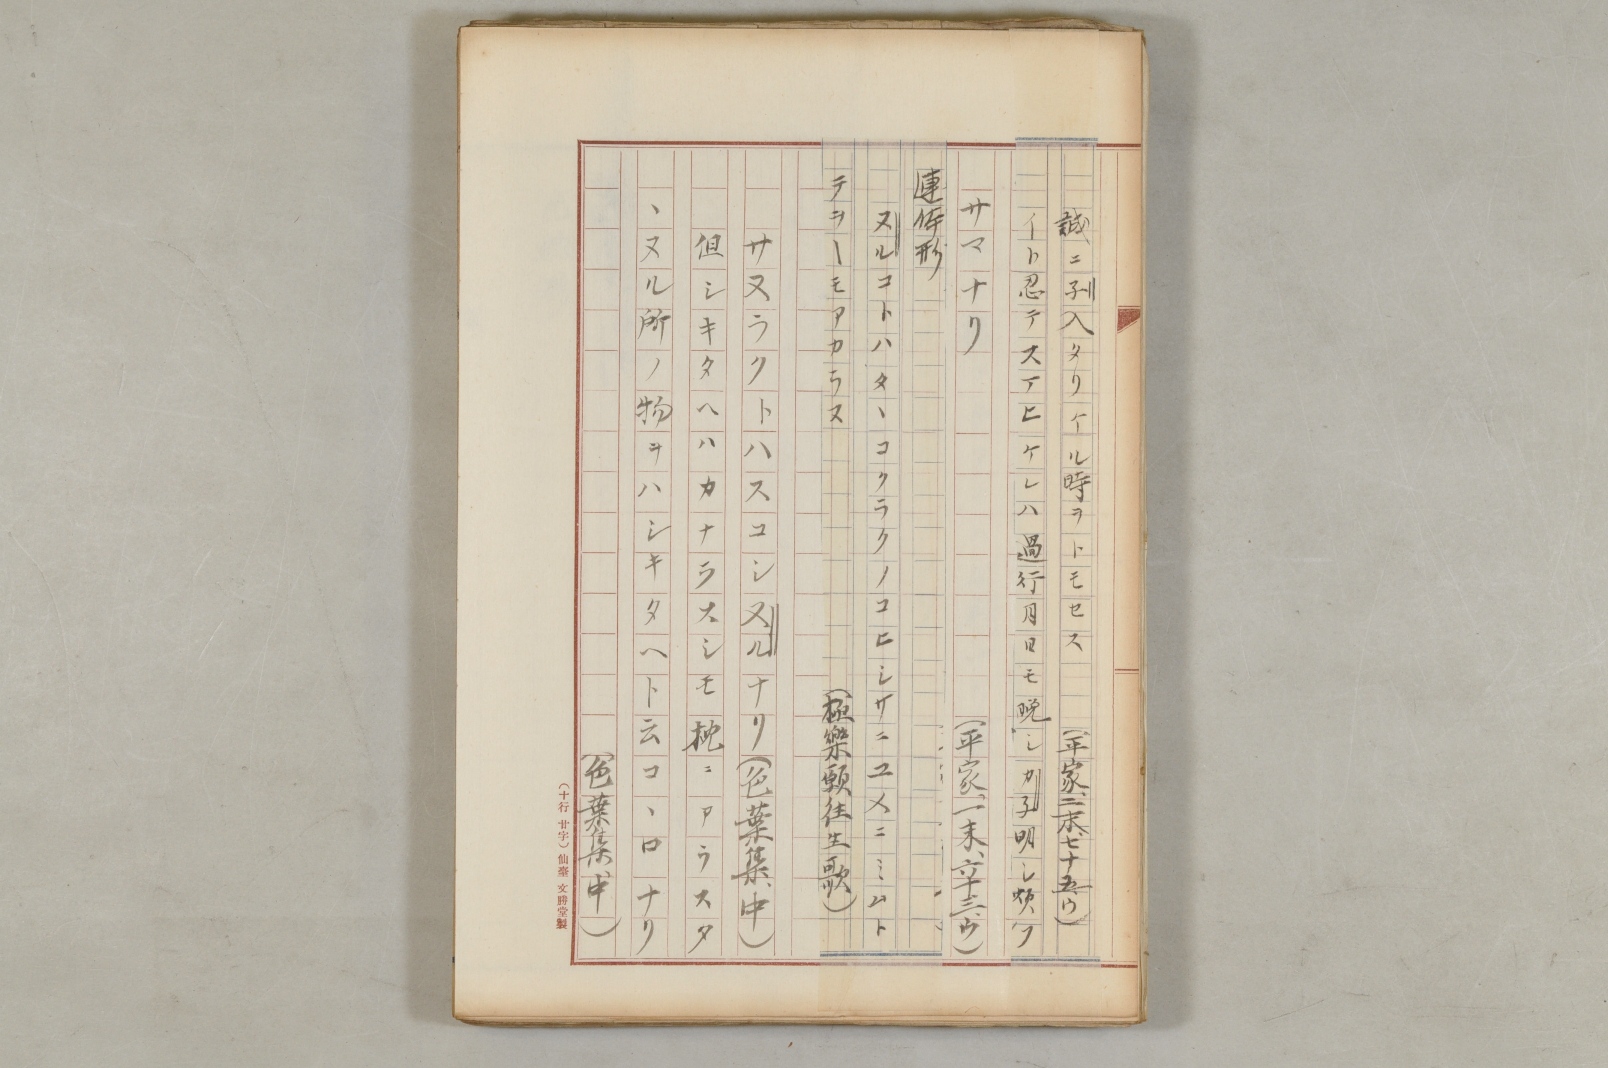 誠ニ子入タリケル時ヲトモセス（平家、二末、七十五ウ）
イト忍テスアヒケレハ過行月日モ晩シカ子明シ煩フ
サマナリ（平家、一末、六十三ウ）
連体形
ヌルコトハタヽコクラクノコヒシサニユメニミムト
テヲーモアカラス（極樂願往生歌）
サヌラクトハスコシヌルナリ（色葉集、中）
但シキタヘハカナラスシモ枕ニアラスタ
ヽヌル所ノ物ヲハシキタヘト云コヽロナリ
（色葉集、中）
（十行 廿字）仙臺 文勝堂製